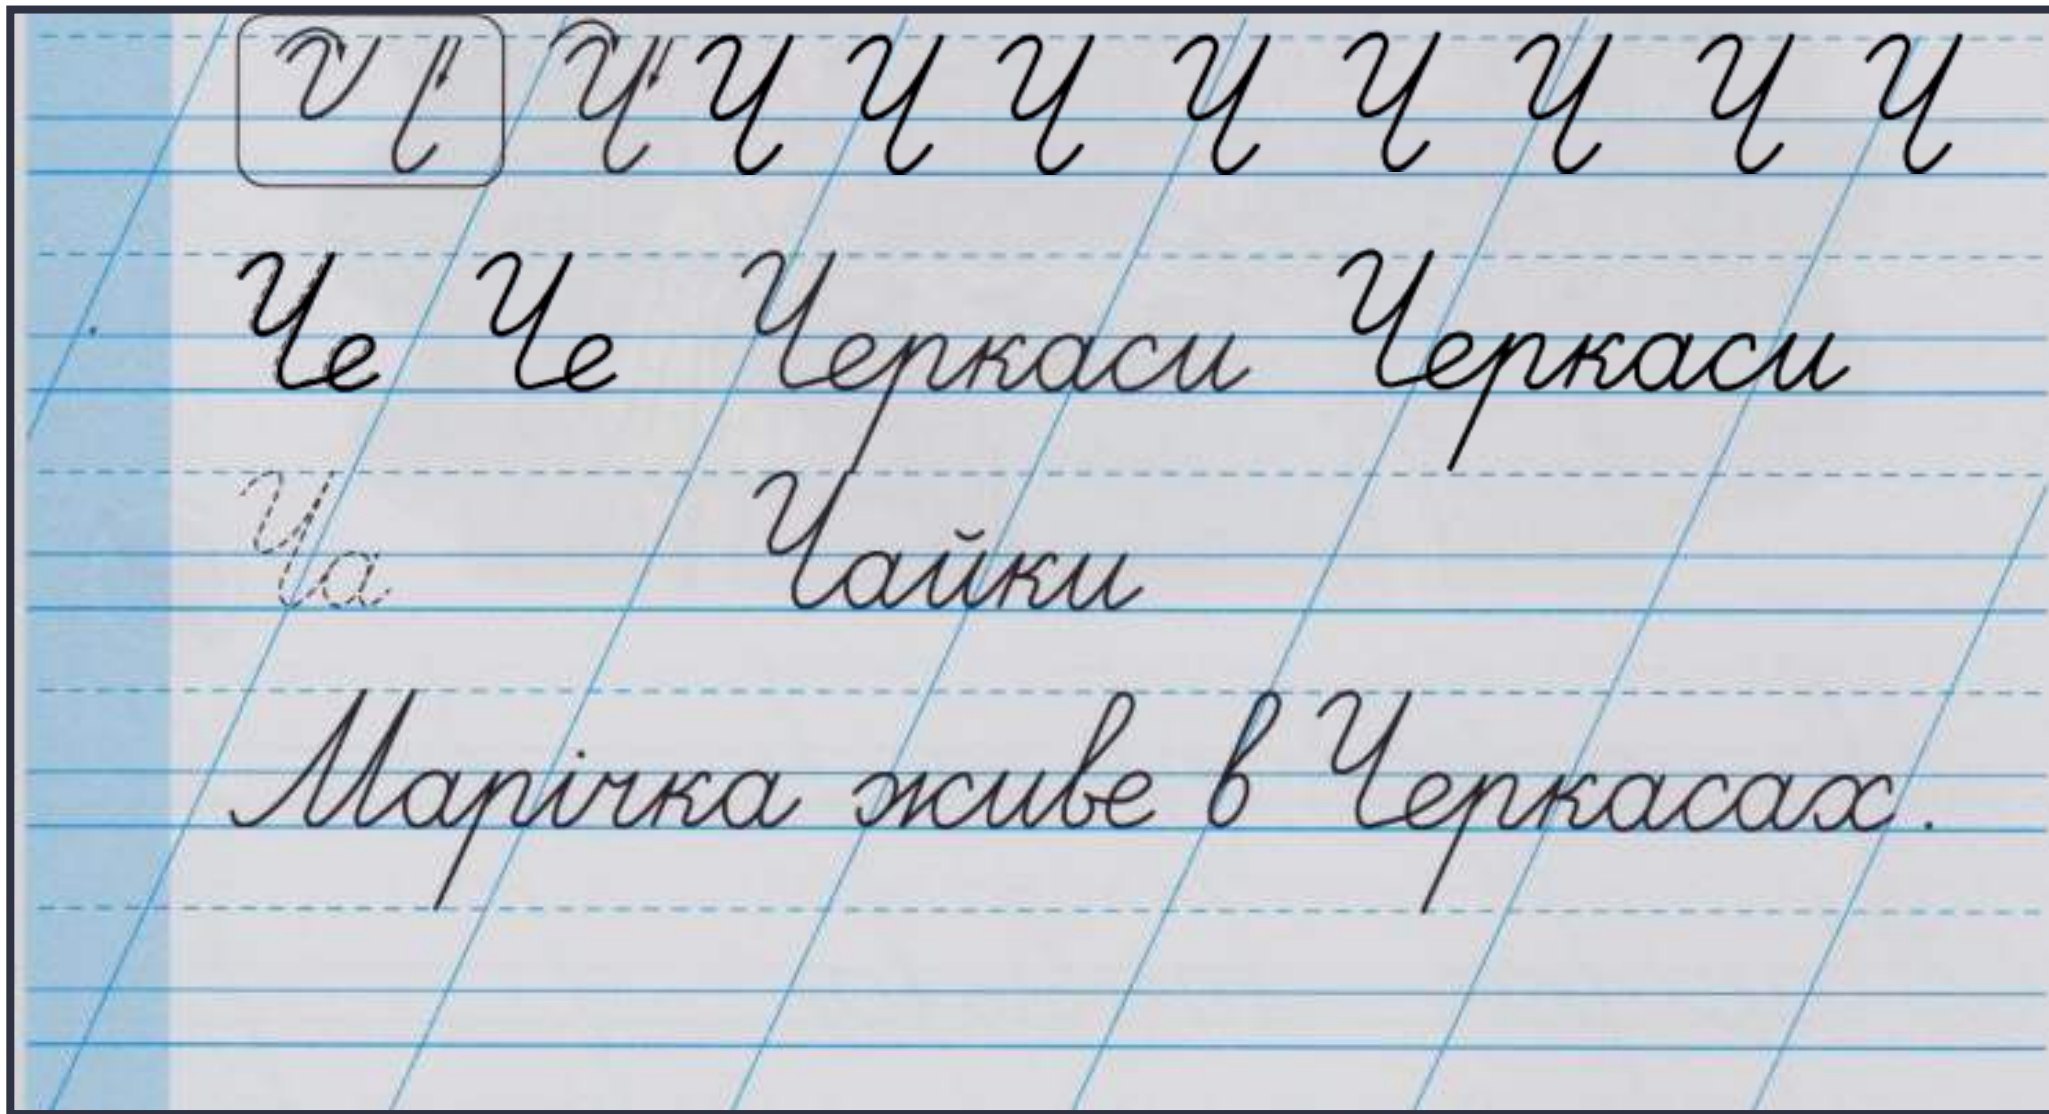 Ч Ч Ч Ч Ч Ч Ч Ч Ч
Че Че Черкаси Черкаси
Ча Чайки
Марічка живе в Черкасах.